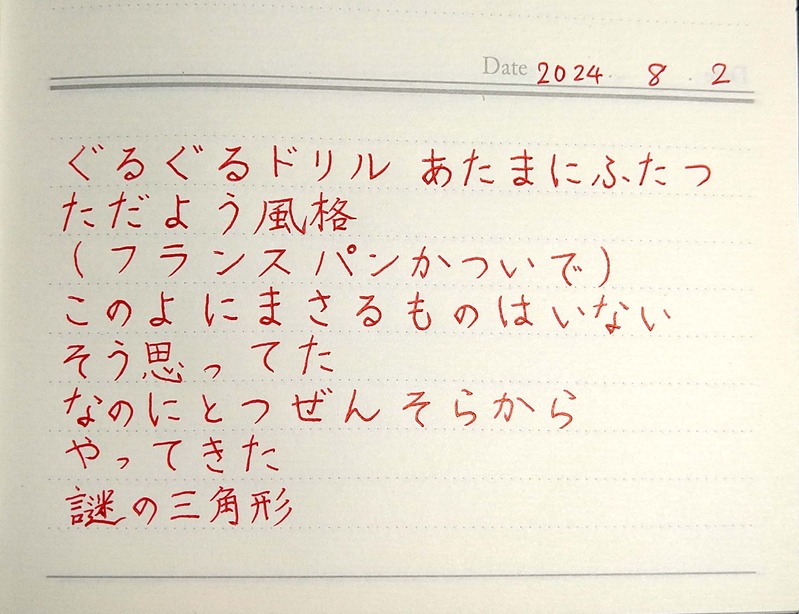 Date 2024. 8. 2
ぐるぐるドリル あたまにふたつ
ただよう風格
(フランスパンかついで)
このよにまさるものはいない
そう思ってた
なのにとつぜんそらから
やってきた
謎の三角形